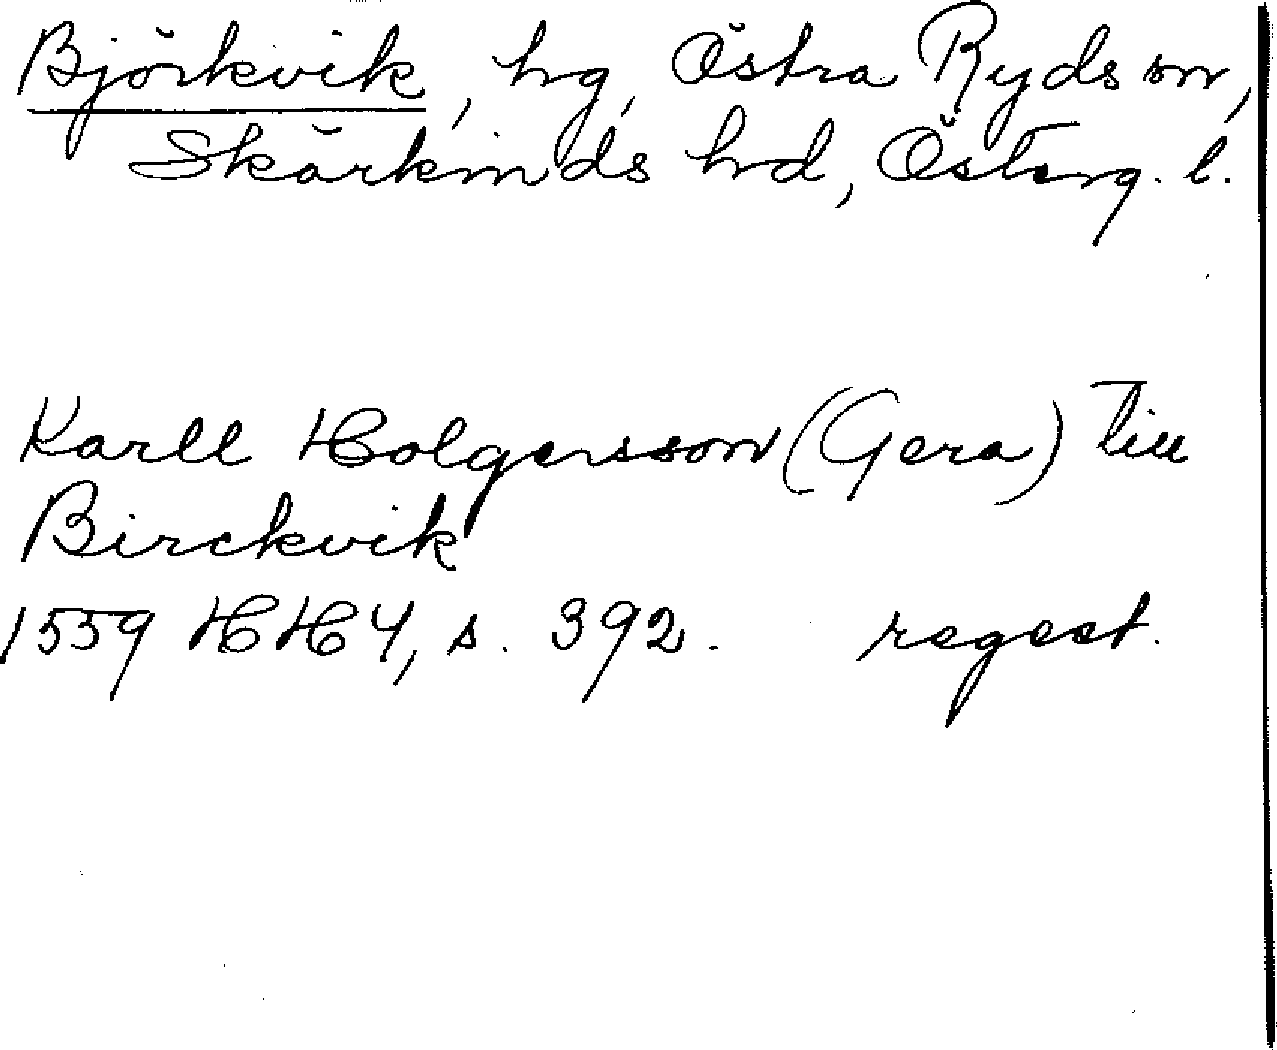 Björkvik, hg, Östra Ryds sn,
Skärkinds hrd, Österg. l.
Karll Holgersson (Gera) till
Birckvik
1559 HH 4, s. 392. regest.